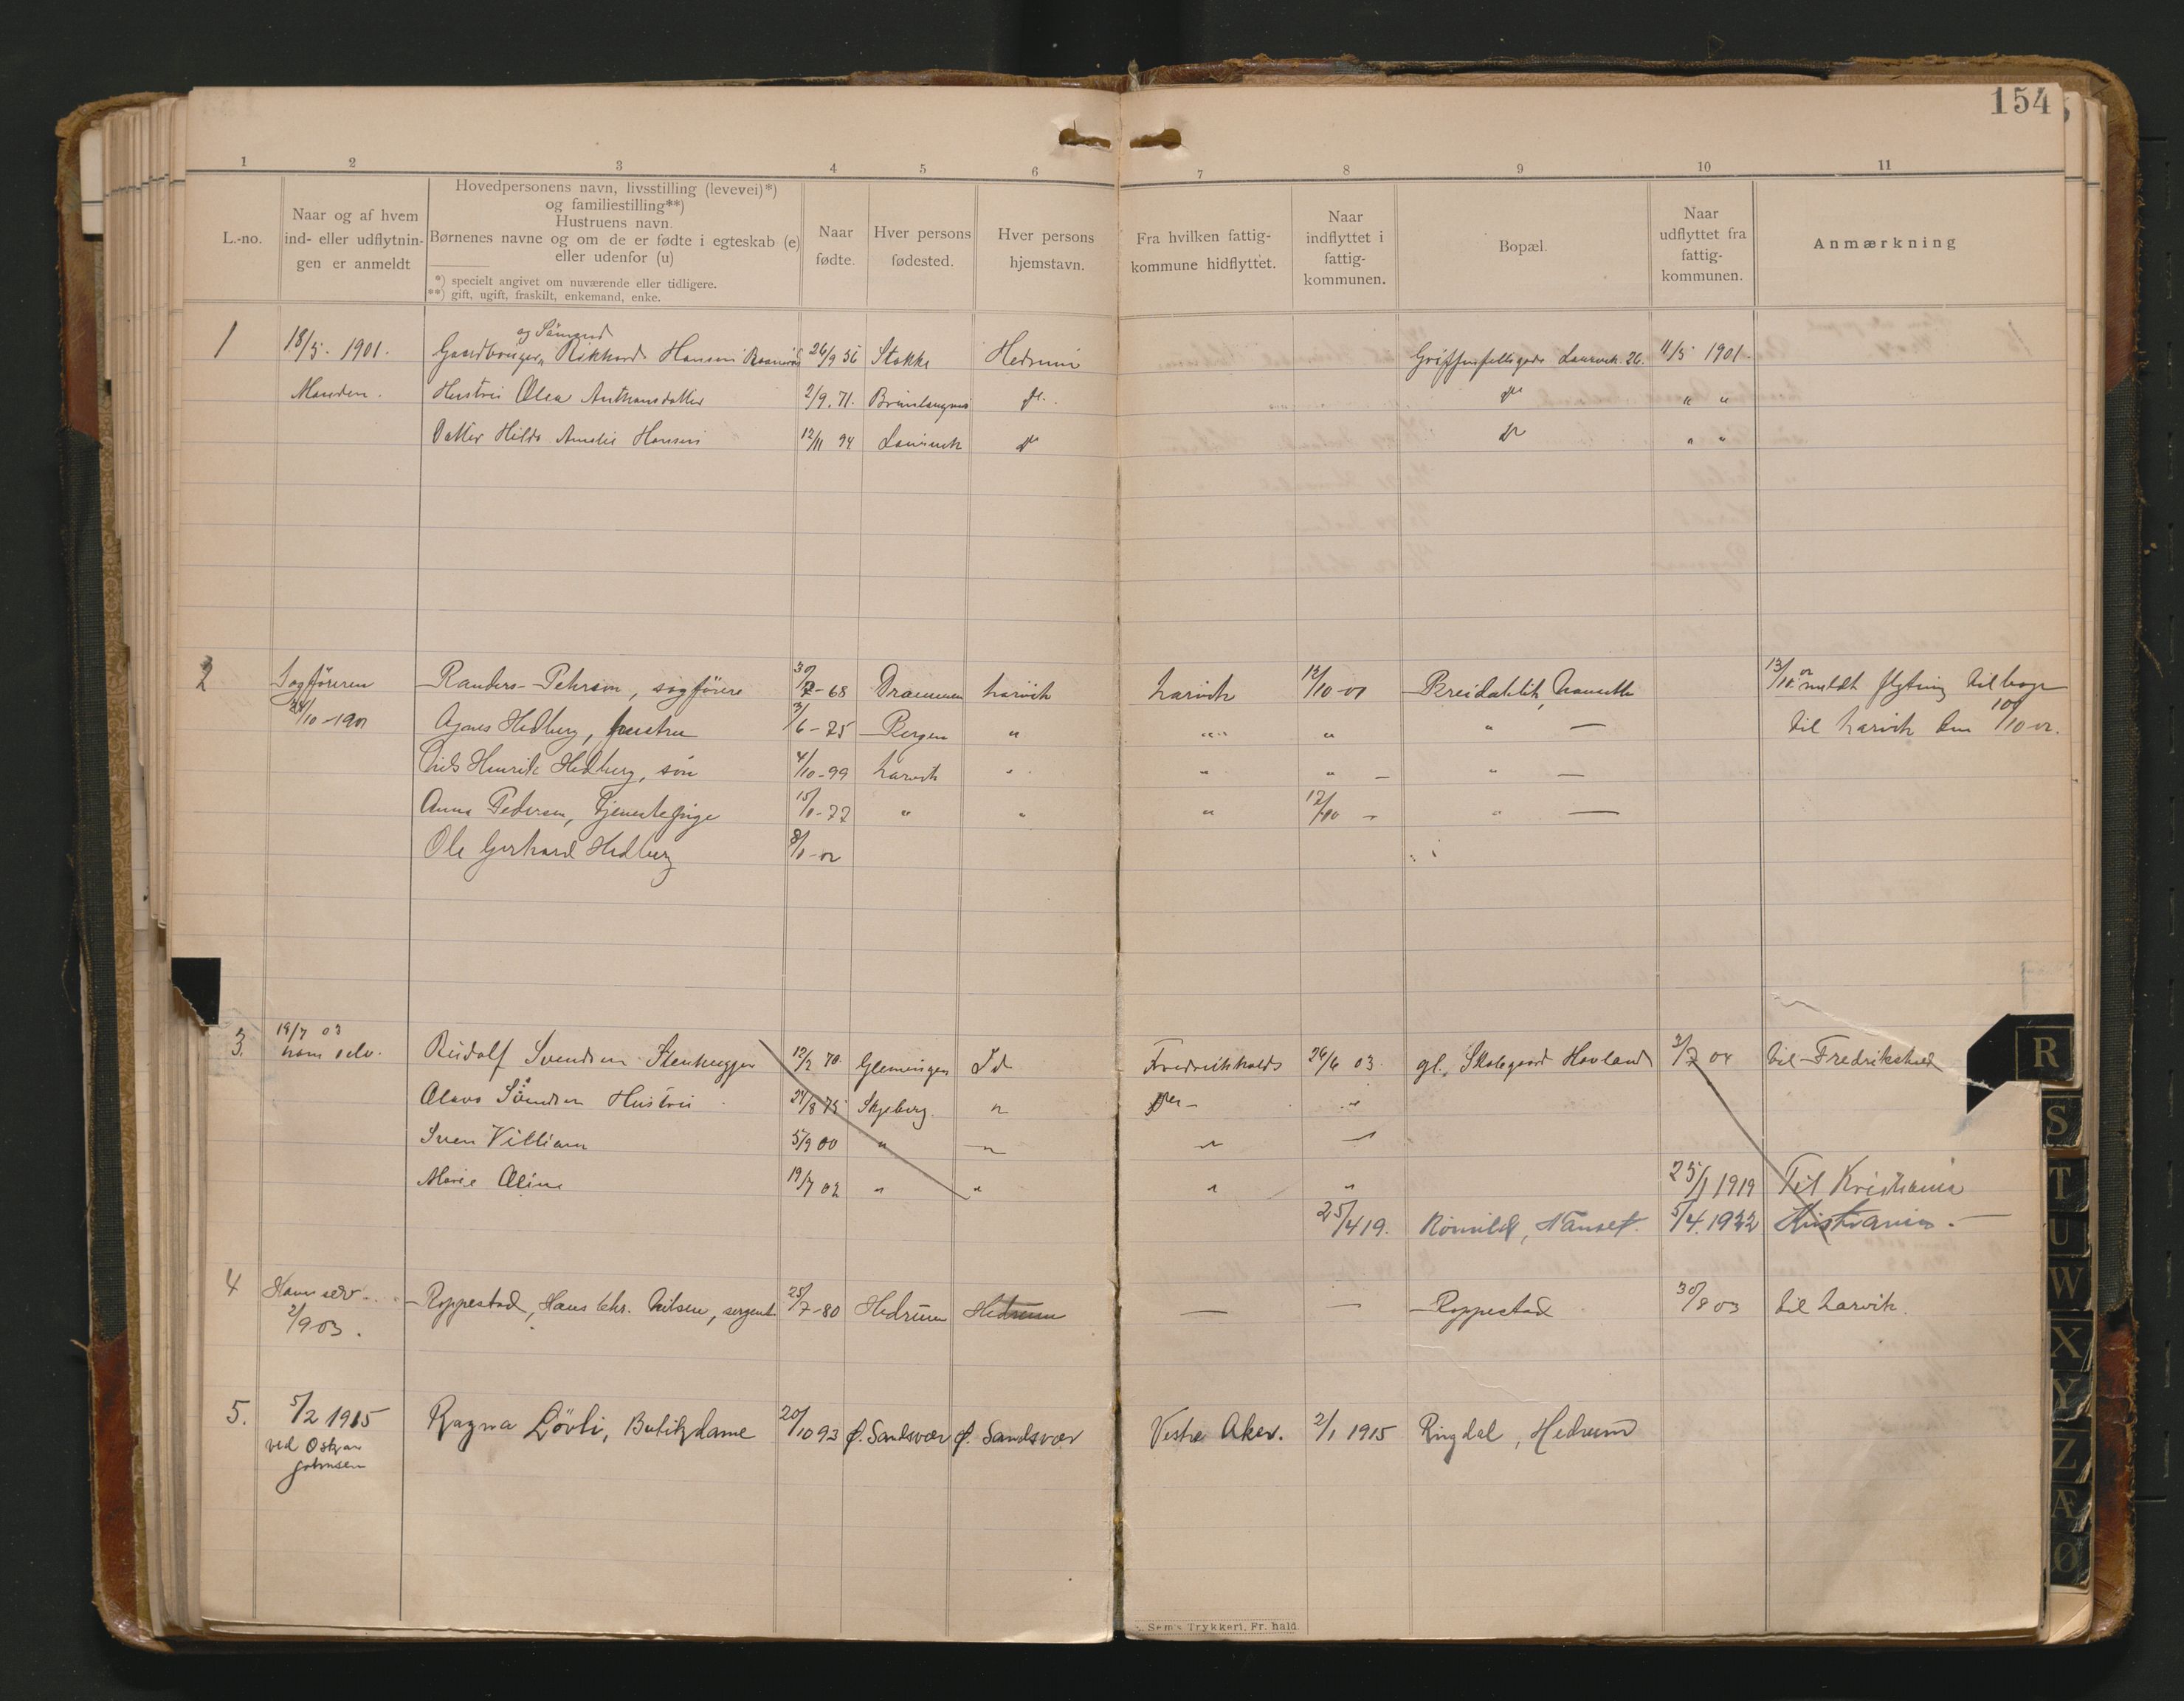 154
1 2 3 4 5 6 7 8 9 10 11
L.-no.
Naar og af hvem
ind- eller udflytnin-
gen er anmeldt
Hovedpersonens navn, livsstilling (levevei)*)
og familiestilling**)
Hustruens navn.
Børnenes navne og om de er fødte i egteskab (e)
eller udenfor (u)
*) specielt angivet om nuværende eller tidligere.
**) gift, ugift, fraskilt, enkemand, enke.
Naar
fødte.
Hver persons
fødested.
Hver persons
hjemstavn.
Fra hvilken fattig-
kommune hidflyttet.
Naar
indflyttet i
fattig-
kommunen.
Bopæl.
Naar
udflyttet fra
fattig-
kommunen.
Anmærkning
og Sömand
1 18/5. 1901. Gaardbruger Rikkard Hansen 26/9 56 Stokke Hedrum Laurvik. 26. 11/5 1901.
Manden. Hustru Olea Anthonsdatter 2/9. 71. Brunlangnes do. do " "
Datter Hilda Amalie Hansen 12/11 94 Laurvik do do " "
2 Sagføreren Randers-Pehrson, sagfører 30/7-68 Drammen Larvik Larvik 12/10-01 Breidablik, Nanseth 13/10.02 meldt flytning tilbage
Agnes Hedberg, hustru 3/6-75 Bergen " " " " — til Larvik den 10/10 02.
Nils Henrik Hedberg, søn 4/10-99 Larvik " " " — " —
Anna Pedersen, Tjenestepige " " " " —
Ole Gerhard Hedberg
3. 19/7 03
ham selv. Rudolf Svendsen Stenhugger 12/2 70. Glemmingen Id Fredrikshalds 26/6 03. gl. Skolegaard Hovland 3/7 04 til Fredrikshald
Olava Svendsen Hustru 24/8 75 Skjeberg. " "
Sven Villiam 5/9 00 " " "
Marie Oline 19/7 02 " " " " 25/1 1919 Til Kristiania
25/4 19. Römild, Nanset. 5/4. 1922 Kristiania. —
4 Ham selv 2/9 03. Roppestad, Hans Chr. Nilsen, sergent 25/7-80 Hedrum Hedrum — — Roppestad 30/8 03 til Larvik.
5. 5/2 1915 Ragna Lövli, Butikdame 20/10 93 Ø. Sandsvær Ø. Sandsvær Vestre Aker. 2/1 1915 Ringdal, Hedrum
ved Oskar
Johnsen
Sem's Trykkeri. Fr. hald.
R
S
T
U
W
X
Y
Z
Æ
Ø